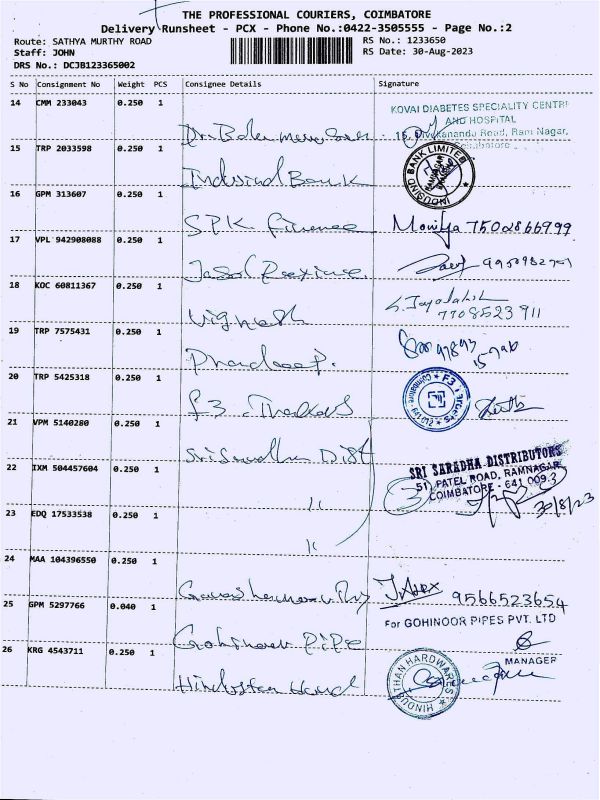 THE PROFESSIONAL COURIERS, COIMBATORE
Delivery Runsheet - PCX - Phone No.:0422-3505555 - Page No.:2
Route: SATHYA MURTHY ROAD
RS No.: 1233650
Staff: JOHN
RS Date: 30-Aug-2023
DRS No.: DCJB123365002
S No Consignment No Weight PCS Consignee Details Signature
14 CMM 233043 0.250 1
KOVAI DIABETES SPECIALITY CENTRE
AND HOSPITAL
15, Vivekananda Road, Ram Nagar,
Coimbatore
Dr. Bala
15 TRP 2033598 0.250 1
Indusind Bank
INDUSIND BANK LIMITED
RAMNAGAR
16 GPM 313607 0.250 1
SPK finance 7502866999
17 VPL 942908088 0.250 1
18 KOC 60811367 0.250 1
Vignesh
7708523911
19 TRP 7575431 0.250 1
Pradeep.
20 TRP 5425318 0.250 1
F3
Coimbatore - 641 012
21 VPM 5140280 0.250 1
Sri Saradha Dist
SRI SARADHA DISTRIBUTORS
51, PATEL ROAD, RAMNAGAR
COIMBATORE - 641 009.
30/8/23
22 IXM 504457604 0.250 1
"
23 EDQ 17533538 0.250 1
"
24 MAA 104396550 0.250 1
9566523654
25 GPM 5297766 0.040 1
Gohinoor Pipe
For GOHINOOR PIPES PVT. LTD
MANAGER
26 KRG 4543711 0.250 1
Hindustan
HINDUSTHAN HARDWARES